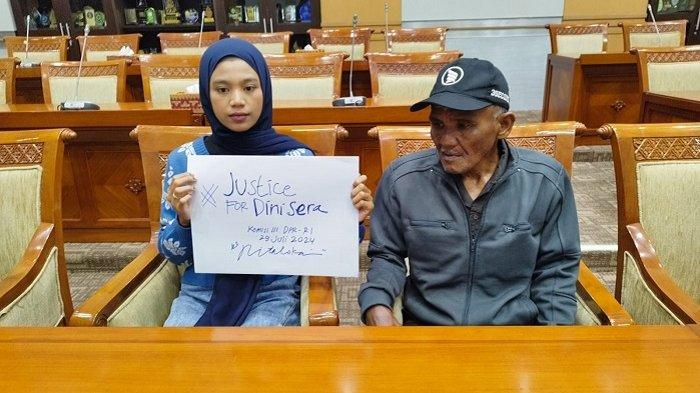 # JUSTICE
FOR DiniSera
Komisi III DPR-RI
29 Juli 2024